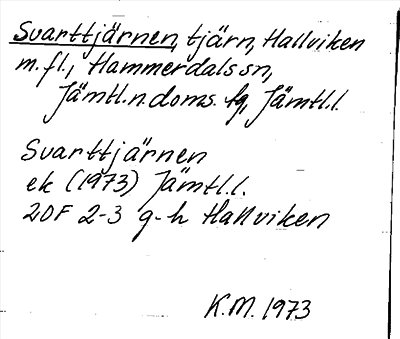 Svarttjärnen, tjärn, Hallviken
m.fl., Hammerdals sn,
Jämtl.n.doms. fg, Jämtl.l.
Svarttjärnen
ek (1973) Jämtl.l.
20F 2-3 g-h Hallviken
K.M. 1973